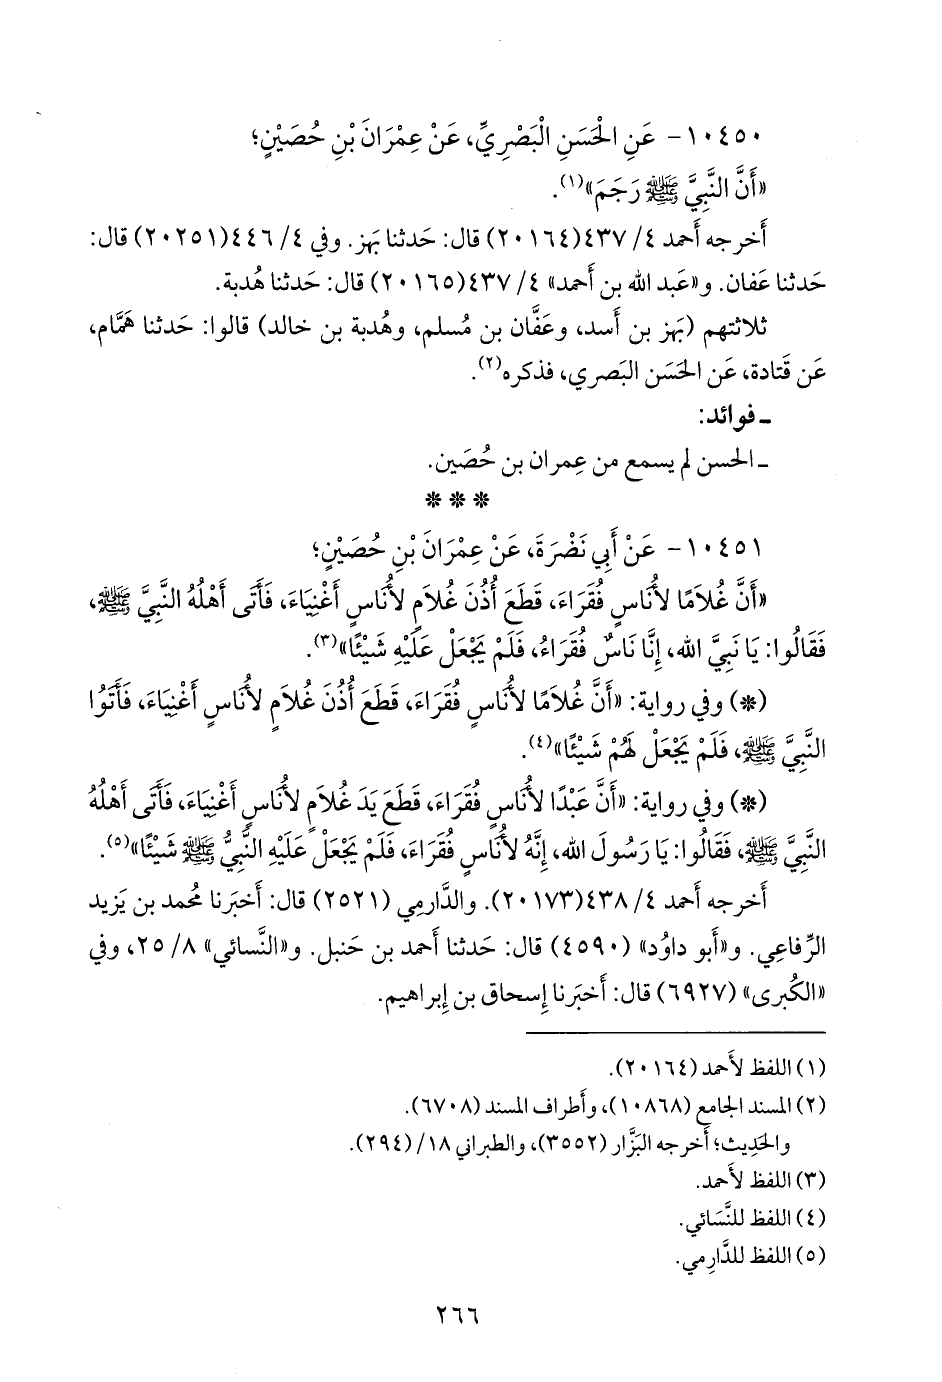 ١٠٤٥٠- عَنِ الْحَسَنِ الْبَصْرِيِّ، عَنْ عِمْرَانَ بْنِ حُصَيْنٍ؛
«أَنَّ النَّبِيَّ ﷺ رَجَمَ»(١).
أَخرجه أَحمد ٤/ ٤٣٧(٢٠١٦٤) قال: حَدثنا بَهز. وفي ٤/ ٤٤٦(٢٠٢٥١) قال:
حَدثنا عَفان. و«عَبد الله بن أَحمد» ٤/ ٤٣٧(٢٠١٦٥) قال: حَدثنا هُدبة.
ثلاثتهم (بَهز بن أَسد، وعَفَّان بن مُسلم، وهُدبة بن خالد) قالوا: حَدثنا هَمَّام،
عَن قَتادة، عَن الحَسَن البَصري، فذكره(٢).
ـ فوائد:
ـ الحسن لم يسمع من عِمران بن حُصَين.
* * *
١٠٤٥١- عَنْ أَبِي نَضْرَةَ، عَنْ عِمْرَانَ بْنِ حُصَيْنٍ؛
«أَنَّ غُلَامًا لأُنَاسٍ فُقَرَاءَ، قَطَعَ أُذُنَ غُلَامٍ لأُنَاسٍ أَغْنِيَاءَ، فَأَتَى أَهْلُهُ النَّبِيَّ ﷺ،
فَقَالُوا: يَا نَبِيَّ الله، إِنَّا نَاسٌ فُقَرَاءُ، فَلَمْ يَجْعَلْ عَلَيْهِ شَيْئًا»(٣).
(*) وفي رواية: «أَنَّ غُلَامًا لأُنَاسٍ فُقَرَاءَ، قَطَعَ أُذُنَ غُلَامٍ لأُنَاسٍ أَغْنِيَاءَ، فَأَتَوُا
النَّبِيَّ ﷺ، فَلَمْ يَجْعَلْ لَهُمْ شَيْئًا»(٤).
(*) وفي رواية: «أَنَّ عَبْدًا لأُنَاسٍ فُقَرَاءَ، قَطَعَ يَدَ غُلَامٍ لأُنَاسٍ أَغْنِيَاءَ، فَأَتَى أَهْلُهُ
النَّبِيَّ ﷺ، فَقَالُوا: يَا رَسُولَ الله، إِنَّهُ لأُنَاسٍ فُقَرَاءَ، فَلَمْ يَجْعَلْ عَلَيْهِ النَّبِيُّ ﷺ شَيْئًا»(٥).
أَخرجه أَحمد ٤/ ٤٣٨(٢٠١٧٣). والدَّارمِي (٢٥٢١) قال: أَخبَرنا مُحمد بن يَزيد
الرِّفاعِي. و«أَبو داوُد» (٤٥٩٠) قال: حَدثنا أَحمد بن حَنبل. و«النَّسائي» ٨/ ٢٥، وفي
«الكُبرى» (٦٩٢٧) قال: أَخبَرنا إِسحاق بن إِبراهيم.
(١) اللفظ لأَحمد (٢٠١٦٤).
(٢) المسند الجامع (١٠٨٦٨)، وأَطراف المسند (٦٧٠٨).
والحَدِيث؛ أَخرجه البَزَّار (٣٥٥٢)، والطبراني ١٨/(٢٩٤).
(٣) اللفظ لأَحمد.
(٤) اللفظ للنَّسَائي.
(٥) اللفظ للدَّارِمي.
٢٦٦